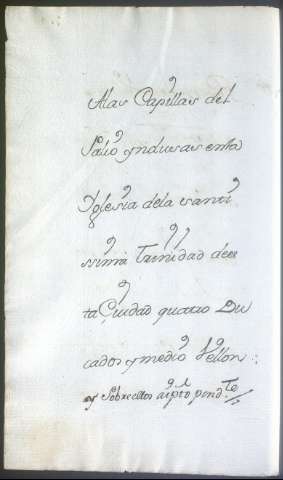 A las Capillas del
Palio yndusas enla
Yglesia dela santi
ssima Trinidad dees
ta Çiudad quatro Du
cados y medio Vellon:
y Sobre ellos